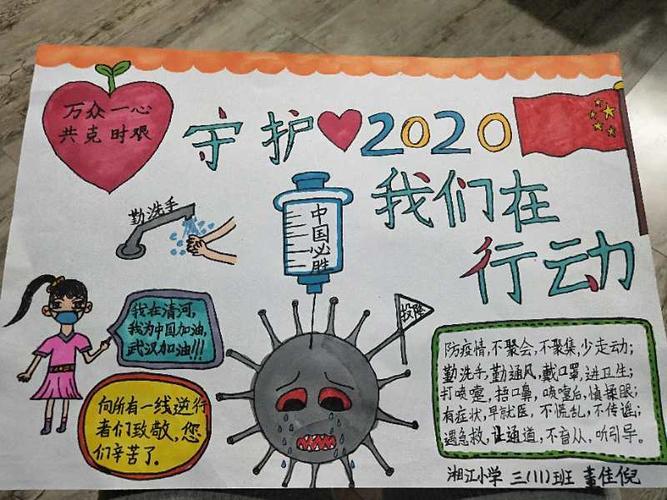 万众一心
共克时艰
守护2020
我们在
行动
勤洗手
中国必胜
投降
我在清河,
我为中国加油,
武汉加油!!!
向所有一线逆行
者们致敬,您
们辛苦了。
防疫情,不聚会,不聚集,少走动;
勤洗手,勤通风,戴口罩,进卫生;
打喷嚏,捂口鼻,咳嗽后,慎揉眼;
有症状,早就医,不慌乱,不传谣;
遇急救,让通道,不盲从,听引导。
湘江小学 三(11)班 董佳倪